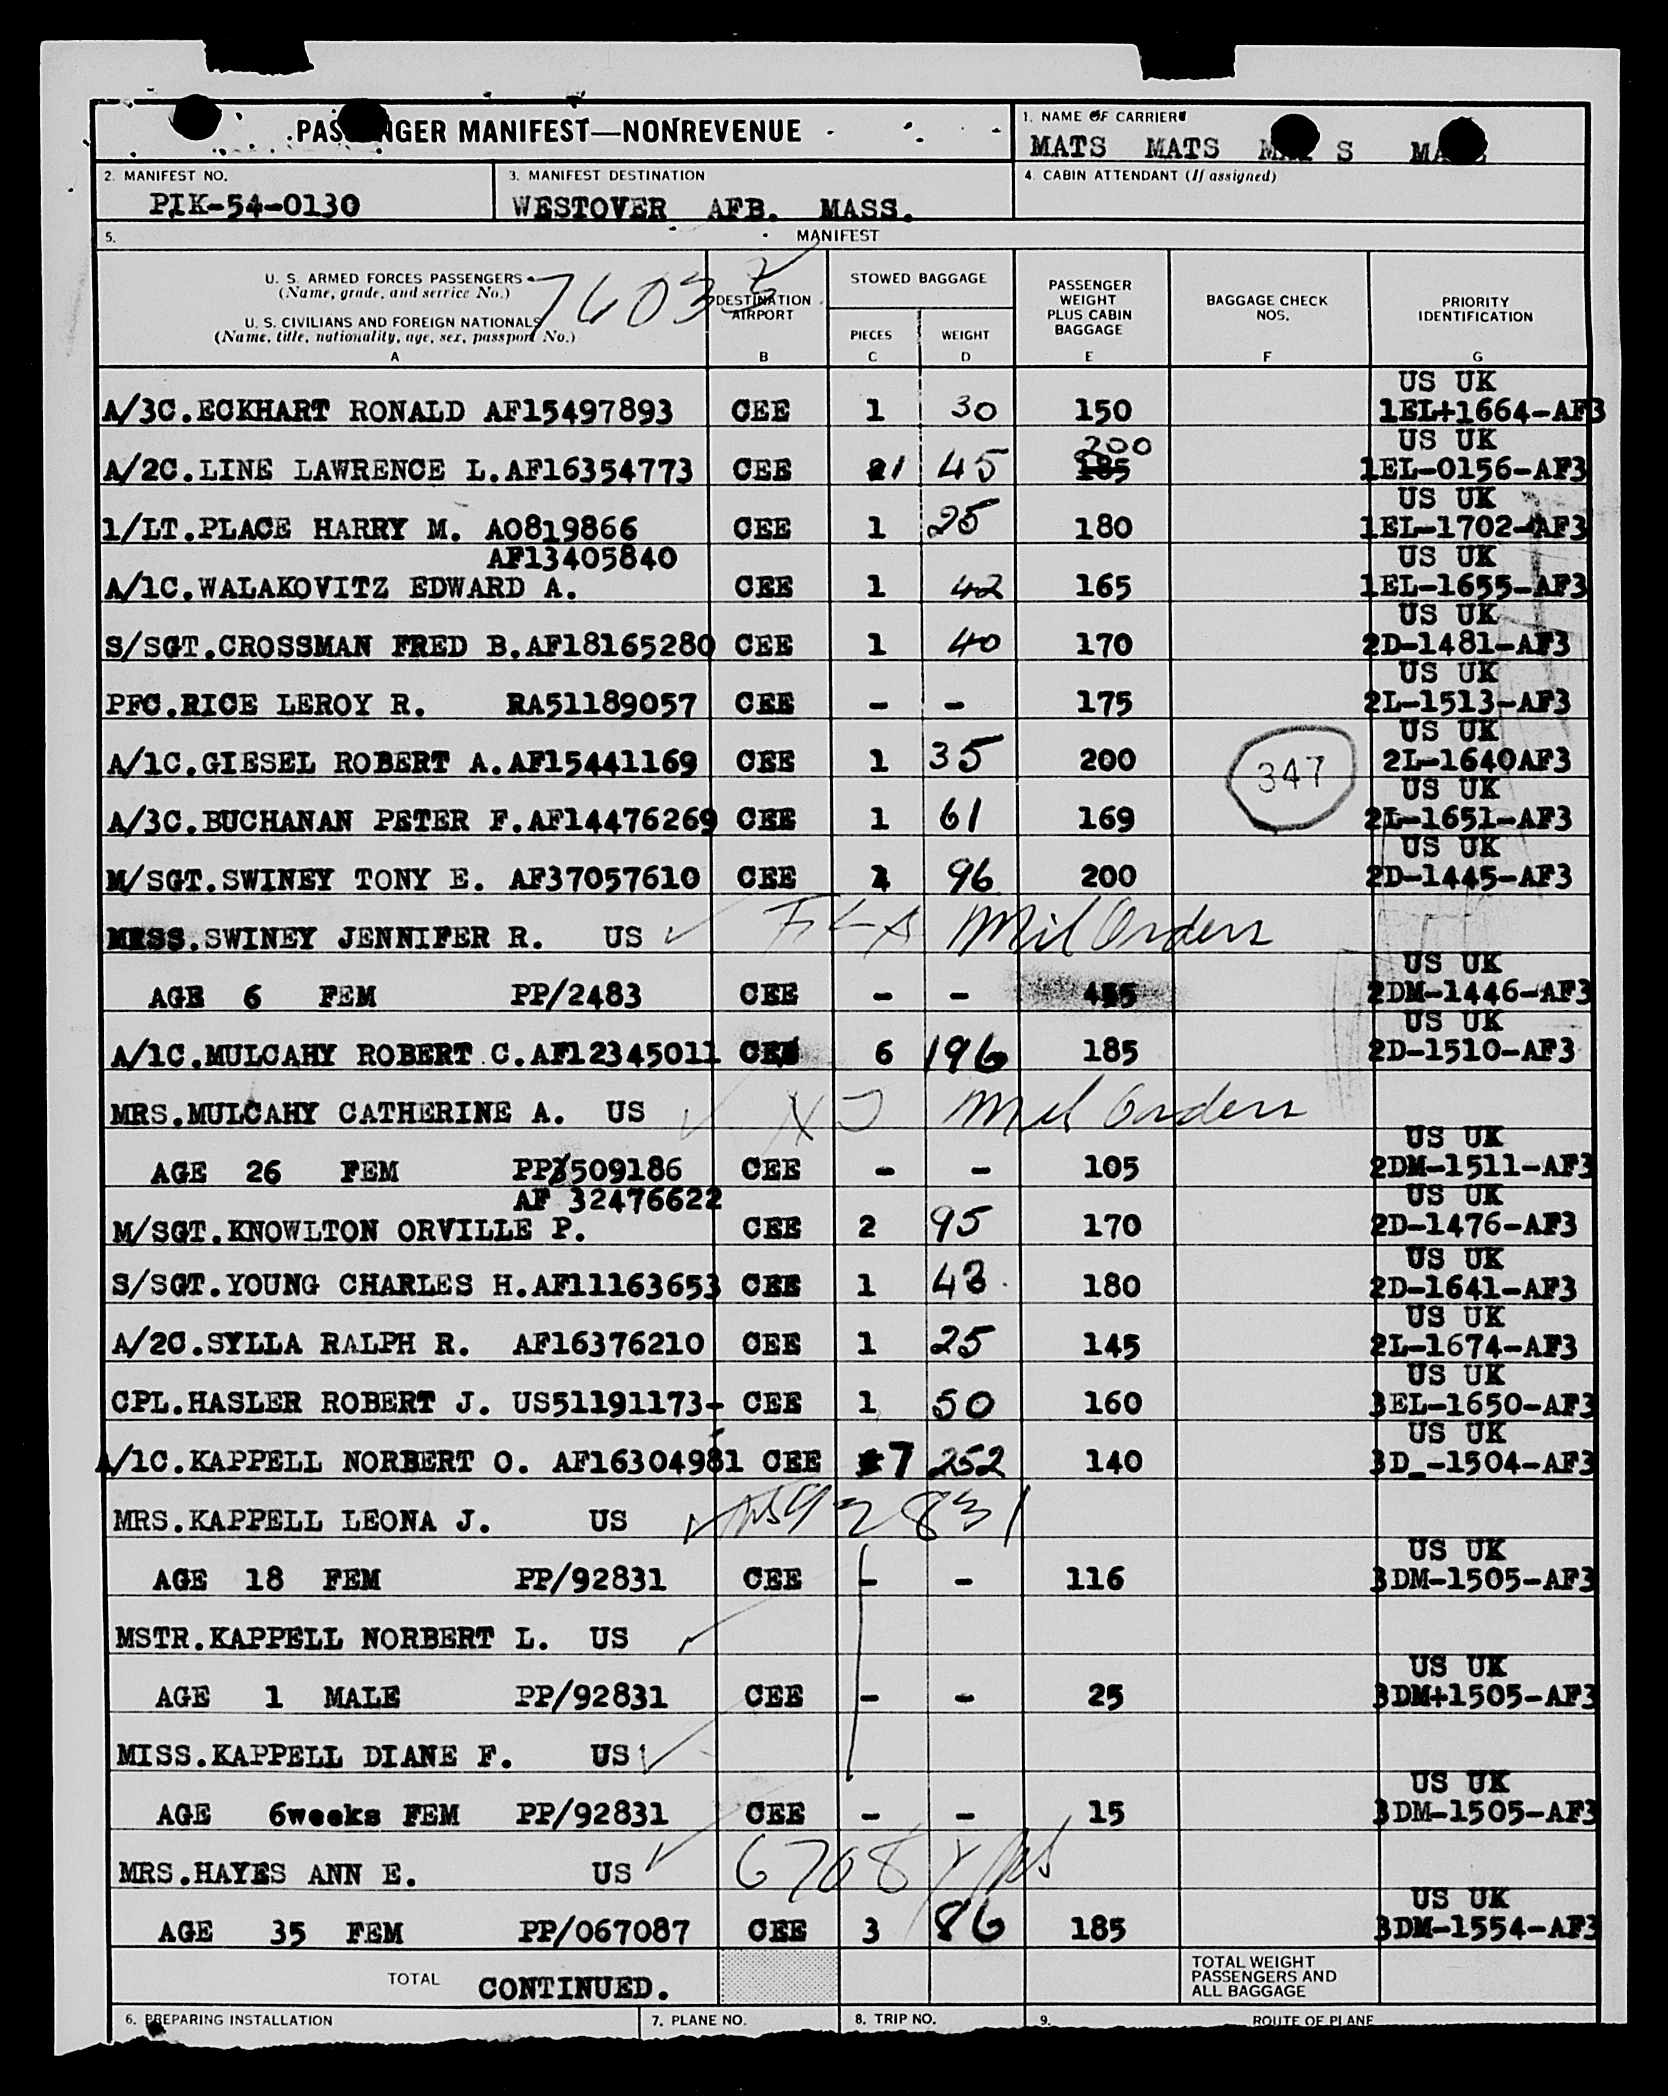 PASSENGER MANIFEST—NONREVENUE
1. NAME OF CARRIER
MATS MATS
2. MANIFEST NO.
PIK-54-0130
3. MANIFEST DESTINATION
WESTOVER AFB. MASS.
4. CABIN ATTENDANT (If assigned)
5. MANIFEST
U. S. ARMED FORCES PASSENGERS
(Name, grade, and service No.)
U. S. CIVILIANS AND FOREIGN NATIONALS
(Name, title, nationality, age, sex, passport No.)
A
DESTINATION AIRPORT
B
STOWED BAGGAGE
PIECES
C
WEIGHT
D
PASSENGER WEIGHT PLUS CABIN BAGGAGE
E
BAGGAGE CHECK NOS.
F
PRIORITY IDENTIFICATION
G
US UK
A/3C.ECKHART RONALD AF15497893 CEE 1 30 150 1EL+1664-AF3
200 US UK
A/2C.LINE LAWRENCE L.AF16354773 CEE 1 45 185 1EL-0156-AF3
US UK
1/LT.PLACE HARRY M. AO819866 CEE 1 25 180 1EL-1702-AF3
AF13405840 US UK
A/1C.WALAKOVITZ EDWARD A. CEE 1 42 165 1EL-1655-AF3
US UK
S/SGT.CROSSMAN FRED B.AF18165280 CEE 1 40 170 2D-1481-AF3
US UK
PFC.RICE LEROY R. RA51189057 CEE - - 175 2L-1513-AF3
US UK
A/1C.GIESEL ROBERT A.AF15441169 CEE 1 35 200 347 2L-1640AF3
US UK
A/3C.BUCHANAN PETER F.AF14476269 CEE 1 61 169 2L-1651-AF3
US UK
M/SGT.SWINEY TONY E. AF37057610 CEE 96 200 2D-1445-AF3
MISS.SWINEY JENNIFER R. US FLA Mil Orders
US UK
AGE 6 FEM PP/2483 CEE - - 2DM-1446-AF3
US UK
A/1C.MULCAHY ROBERT C.AF12345011 CEE 6 196 185 2D-1510-AF3
MRS.MULCAHY CATHERINE A. US NJ Mil Orders
US UK
AGE 26 FEM PP/509186 CEE - - 105 2DM-1511-AF3
AF 32476622 US UK
M/SGT.KNOWLTON ORVILLE P. CEE 2 95 170 2D-1476-AF3
US UK
S/SGT.YOUNG CHARLES H.AF11163653 CEE 1 43 180 2D-1641-AF3
US UK
A/2C.SYLLA RALPH R. AF16376210 CEE 1 25 145 2L-1674-AF3
US UK
CPL.HASLER ROBERT J. US51191173- CEE 1 50 160 3EL-1650-AF3
US UK
A/1C.KAPPELL NORBERT O. AF16304981 CEE 7 252 140 3D_-1504-AF3
MRS.KAPPELL LEONA J. US 92831
US UK
AGE 18 FEM PP/92831 CEE - - 116 3DM-1505-AF3
MSTR.KAPPELL NORBERT L. US
US UK
AGE 1 MALE PP/92831 CEE - - 25 3DM+1505-AF3
MISS.KAPPELL DIANE F. US
US UK
AGE 6weeks FEM PP/92831 CEE - - 15 3DM-1505-AF3
MRS.HAYES ANN E. US
US UK
AGE 35 FEM PP/067087 CEE 3 86 185 3DM-1554-AF3
TOTAL CONTINUED.
TOTAL WEIGHT PASSENGERS AND ALL BAGGAGE
6. PREPARING INSTALLATION
7. PLANE NO.
8. TRIP NO.
9. ROUTE OF PLANE